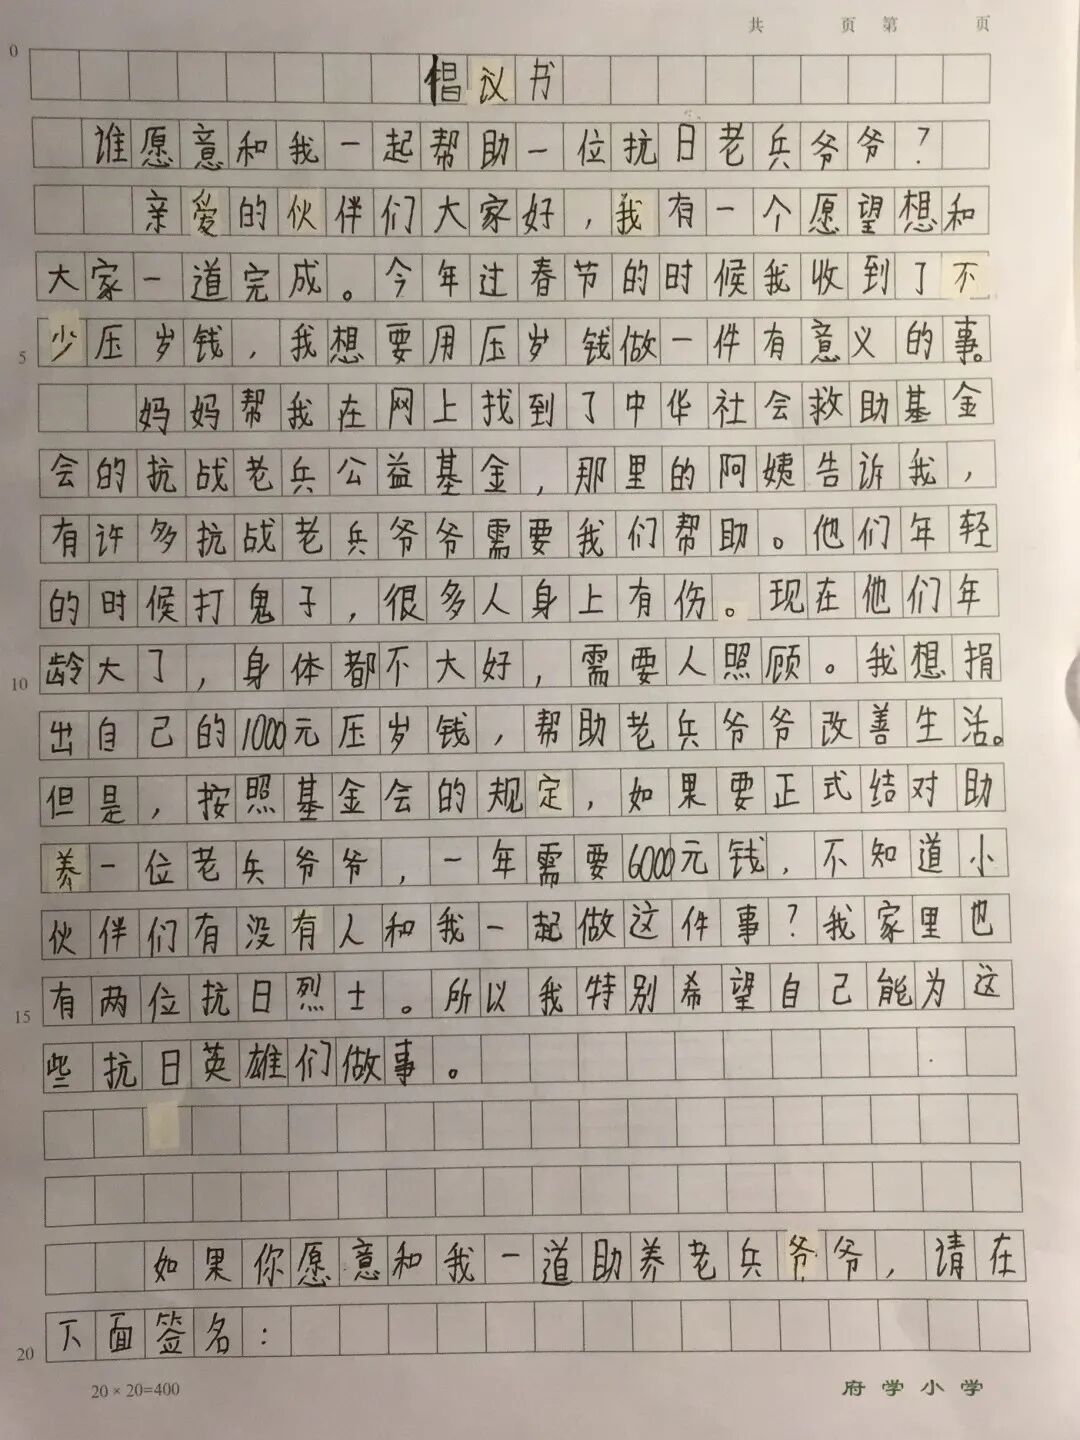 共 页 第 页
0
倡议书
谁愿意和我一起帮助一位抗日老兵爷爷？
亲爱的伙伴们大家好，我有一个愿望想和
大家一道完成。今年过春节的时候我收到了不
5 少压岁钱，我想要用压岁钱做一件有意义的事。
妈妈帮我在网上找到了中华社会救助基金
会的抗战老兵公益基金，那里的阿姨告诉我，
有许多抗战老兵爷爷需要我们帮助。他们年轻
的时候打鬼子，很多人身上有伤。现在他们年
10 龄大了，身体都不大好，需要人照顾。我想捐
出自己的1000元压岁钱，帮助老兵爷爷改善生活。
但是，按照基金会的规定，如果要正式结对助
养一位老兵爷爷，一年需要6000元钱，不知道小
伙伴们有没有人和我一起做这件事？我家里也
15 有两位抗日烈士。所以我特别希望自己能为这
些抗日英雄们做事。
如果你愿意和我一道助养老兵爷爷，请在
20 下面签名：
20×20=400
府学小学